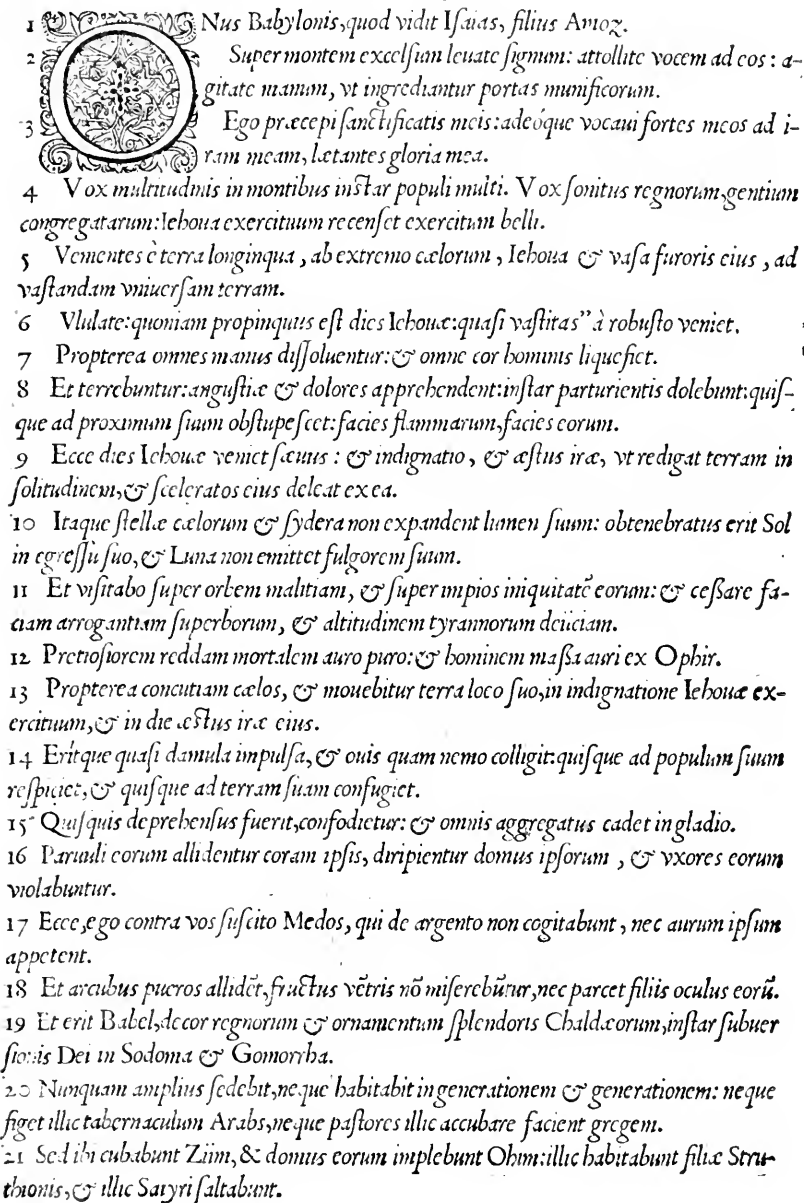 1 ONus Babylonis, quod vidit Iſaias, filius Amoz.
2 Super montem excelſum leuate ſignum: attollite vocem ad eos: a-
gitate manum, vt ingrediantur portas munificorum.
3 Ego præcepi ſanctificatis meis: adeóque vocaui fortes meos ad i-
ram meam, lætantes gloria mea.
4 Vox multitudinis in montibus inſtar populi multi. Vox ſonitus regnorum, gentium
congregatarum: Iehoua exercituum recenſet exercitum belli.
5 Venientes è terra longinqua, ab extremo cælorum, Iehoua & vaſa furoris eius, ad
vaſtandam vniuerſam terram.
6 Vlulate: quoniam propinquus eſt dies Iehouæ: quaſi vaſtitas" à robuſto veniet.
7 Propterea omnes manus diſſoluentur: & omne cor hominis liquefiet.
8 Et terrebuntur: anguſtiæ & dolores apprehendent: inſtar parturientis dolebunt: quiſ-
que ad proximum ſuum obſtupeſcet: facies flammarum, facies eorum.
9 Ecce dies Iehouæ veniet ſæuus: & indignatio, & æſtus iræ, vt redigat terram in
ſolitudinem, & ſceleratos eius deleat ex ea.
10 Itaque ſtellæ cælorum & ſydera non expandent lumen ſuum: obtenebratus erit Sol
in egreſſu ſuo, & Luna non emittet fulgorem ſuum.
11 Et viſitabo ſuper orbem malitiam, & ſuper impios iniquitatē eorum: & ceßare fa-
ciam arrogantiam ſuperborum, & altitudinem tyrannorum deiiciam.
12 Pretioſiorem reddam mortalem auro puro: & hominem maßa auri ex Ophir.
13 Propterea concutiam cælos, & mouebitur terra loco ſuo, in indignatione Iehouæ ex-
ercituum, & in die æſtus iræ eius.
14 Eritque quaſi damula impulſa, & ouis quam nemo colligit: quiſque ad populum ſuum
reſpiciet, & quiſque ad terram ſuam confugiet.
15 Quiſquis deprehenſus fuerit, confodietur: & omnis aggregatus cadet in gladio.
16 Paruuli eorum allidentur coram ipſis, diripientur domus ipſorum, & vxores eorum
violabuntur.
17 Ecce, ego contra vos ſuſcito Medos, qui de argento non cogitabunt, nec aurum ipſum
appetent.
18 Et arcubus pueros allidēt, fructus vētris nō miſerebūtur, nec parcet filiis oculus eorū.
19 Et erit Babel, decor regnorum & ornamentum ſplendoris Chaldæorum, inſtar ſubuer
ſionis Dei in Sodoma & Gomorrha.
20 Nunquam amplius ſedebit, neque habitabit in generationem & generationem: neque
figet illic tabernaculum Arabs, neque paſtores illic accubare facient gregem.
21 Sed ibi cubabunt Ziim, & domus eorum implebunt Ohim: illic habitabunt filiæ Stru-
thionis, & illic Satyri ſaltabunt.